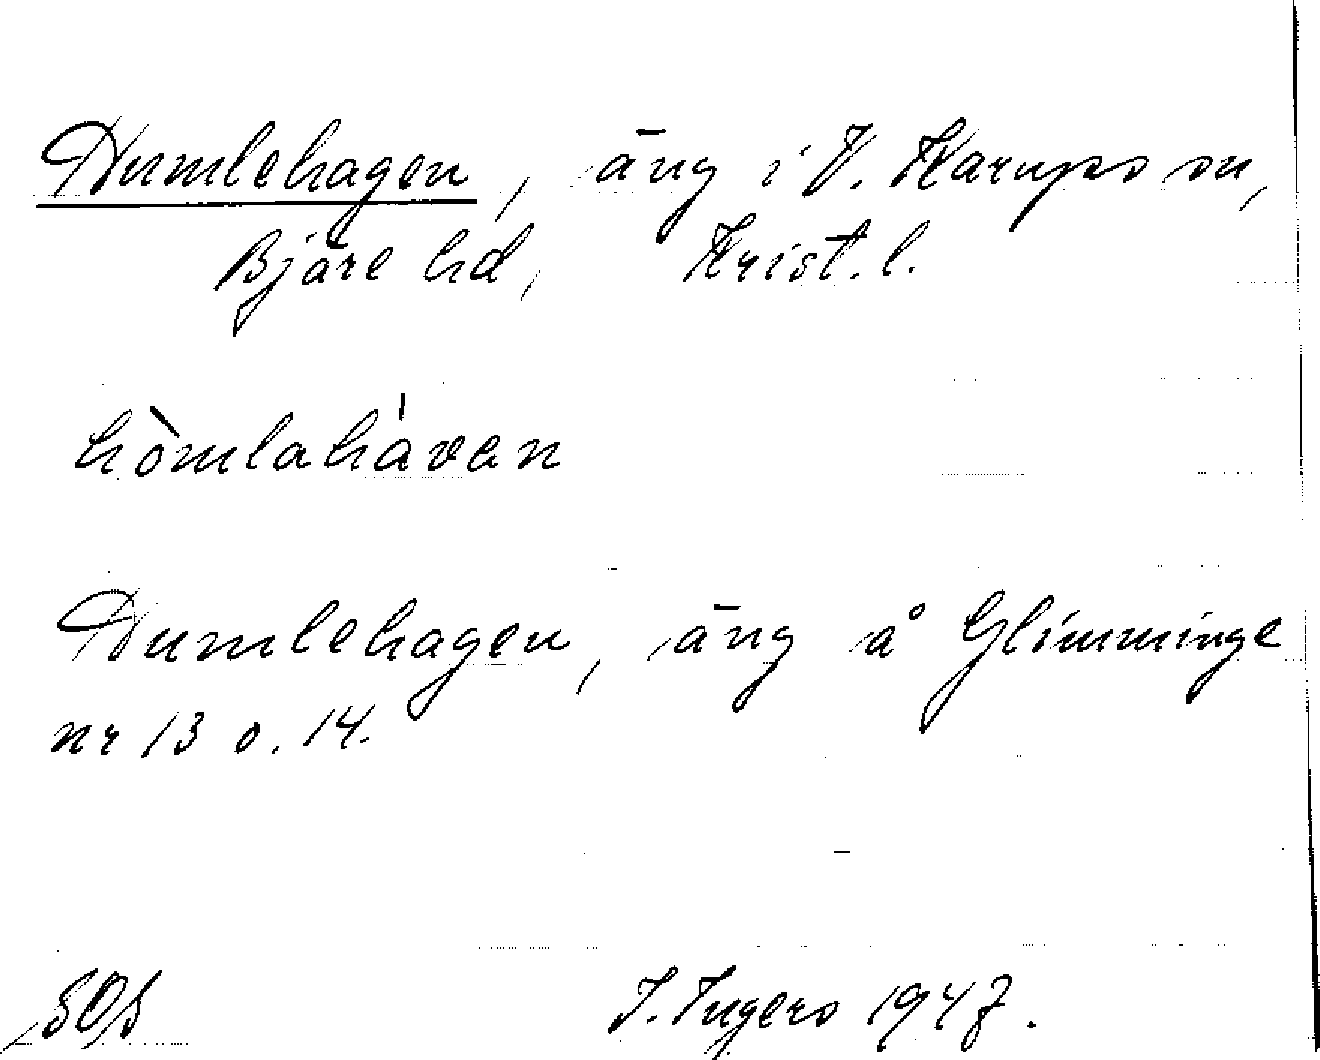 Humlehagen, äng i V. Karups sn,
Bjäre hd, Krist. l.
hòmlahávan
Humlehagen, äng å Glimminge
nr 13 o. 14.
SOS I. Ingers 1947.